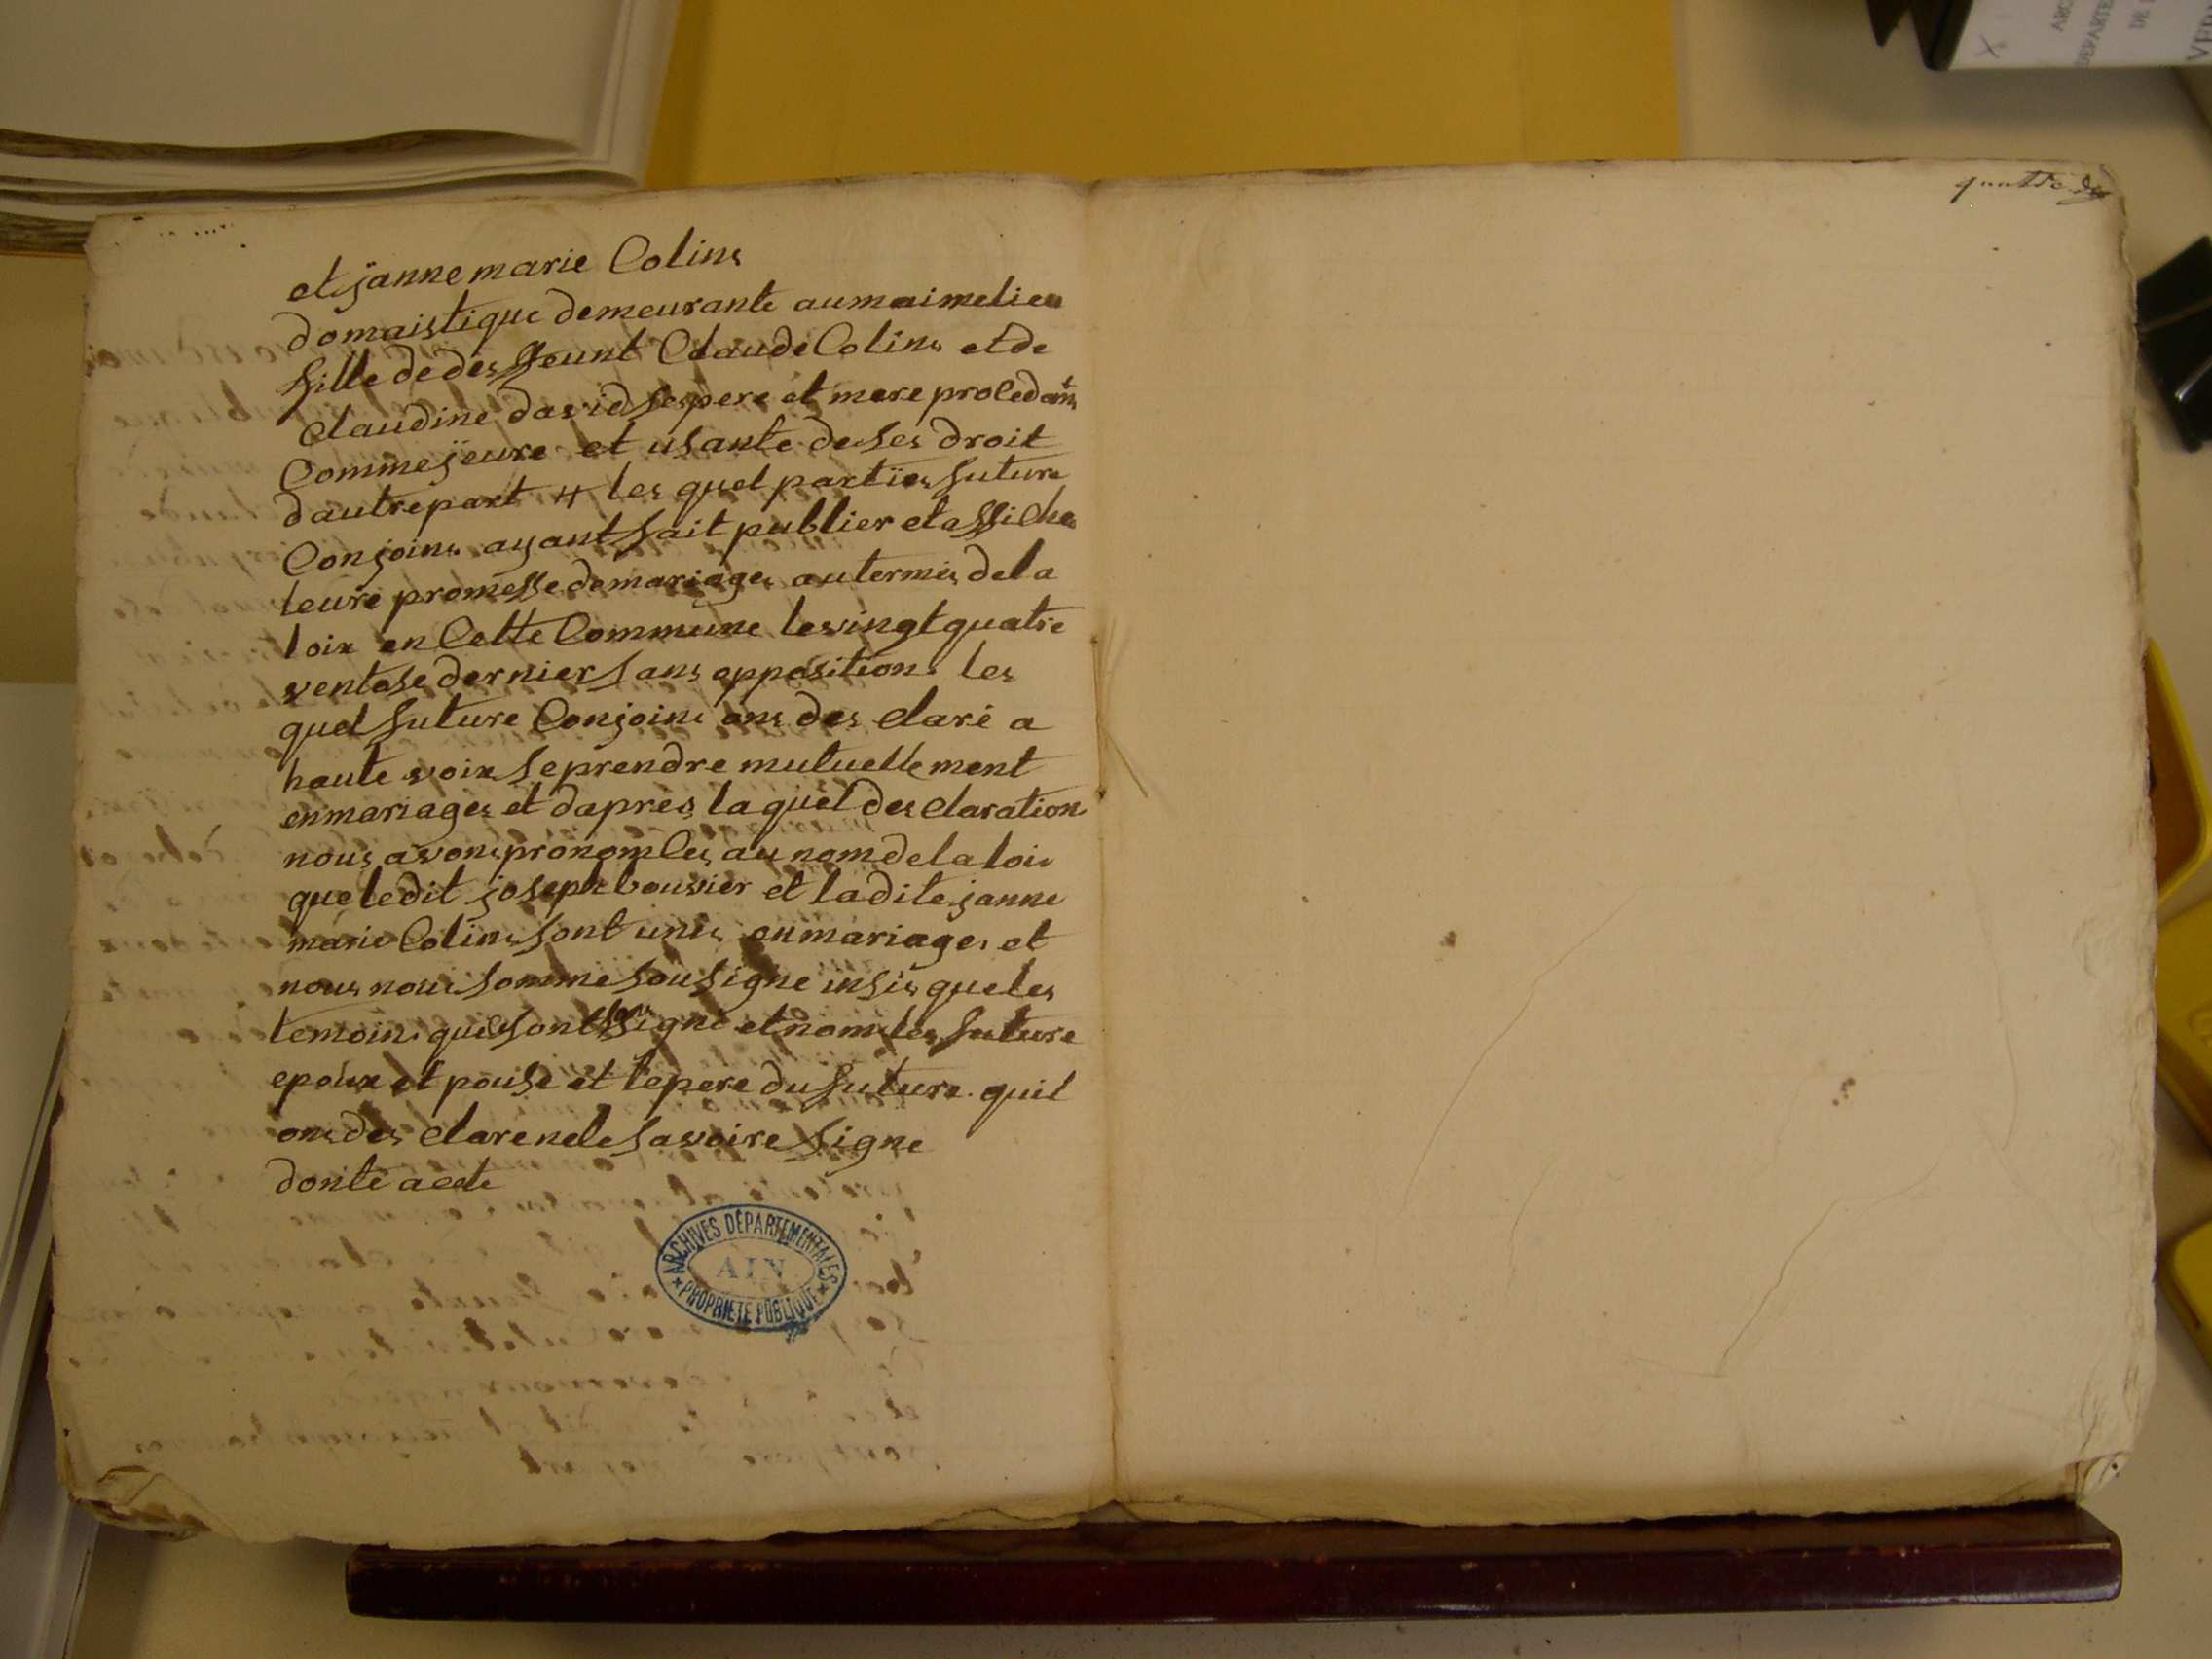 et janne marie Colins
domaistique demeurante au maime lieu
fille de desffeunt Claude Colins et de
Claudine david ses pere et mere procedant
Comme jeure et usante de ses droit
dautre part # les quel parties future
Conjoins ayant fait publier et affiche
leure promesse de mariages au termes de la
loix en Cette Commune le vingt quatre
ventose dernier sans opposition les
quel future Conjoins ons des claré a
haute voix se prendre mutuellement
en mariages et dapres la quel des claration
nous avons pronomces au nom de la lois
que ledit joseph bouvier et ladite janne
marie Colins sont unis en mariages et
nous nous somme sousigne insis que les
temoins qui sont signe et nom les future
epoux et pouse et le pere du future quil
ons des clare ne le savoire signe
donte acete
ARCHIVES DÉPARTEMENTALES
AIN
PROPRIÉTÉ PUBLIQUE
quattre
DE